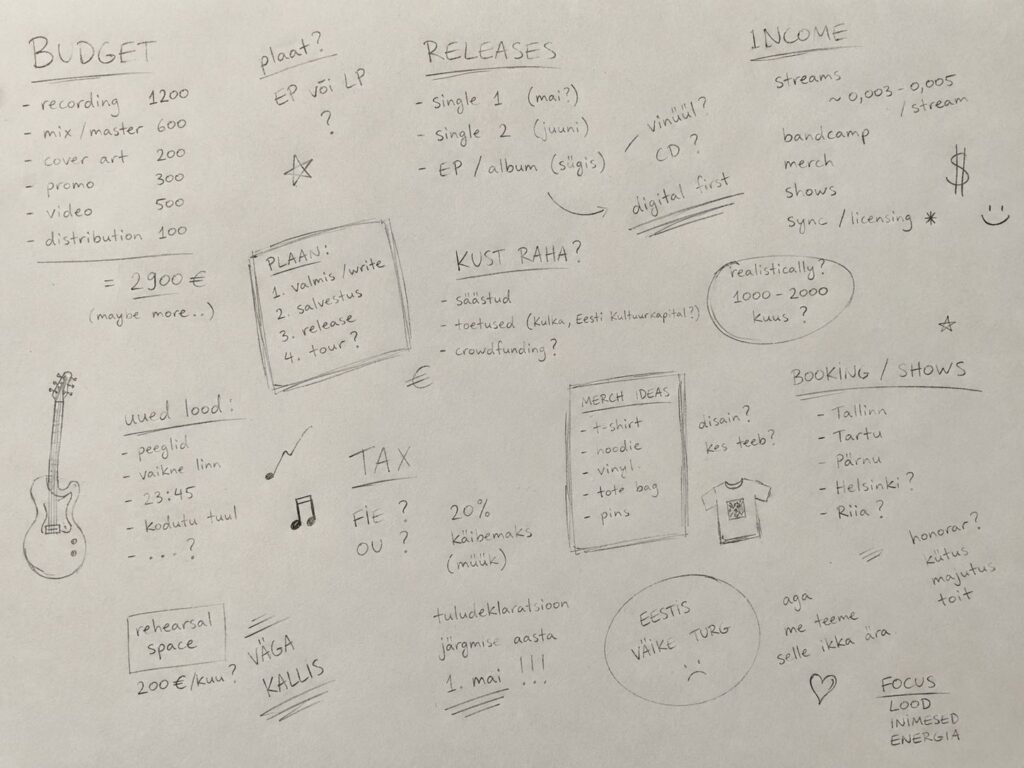 BUDGET
- recording 1200
- mix/master 600
- cover art 200
- promo 300
- video 500
- distribution 100
= 2900 €
(maybe more..)
plaat?
EP või LP
?
RELEASES
- single 1 (mai?)
- single 2 (juuni)
- EP / album (sügis)
vinüül?
CD?
digital first
INCOME
streams
~ 0,003 - 0,005
/ stream
bandcamp
merch
shows
sync / licensing *
$
realistically?
1000 - 2000
kuus ?
PLAAN:
1. valmis/write
2. salvestus
3. release
4. tour?
KUST RAHA?
- säästud
- toetused (Kulka, Eesti Kultuurkapital?)
- crowdfunding?
€
uued lood:
- peeglid
- vaikne linn
- 23:45
- Kodutu tuul
- ....?
TAX
FIE ?
OU ?
20%
Käibemaks
(müük)
MERCH IDEAS
- t-shirt
- hoodie
- vinyl.
- tote bag
- pins
disain?
kes teeb?
BOOKING / SHOWS
- Tallinn
- Tartu
- Pärnu
- Helsinki?
- Riia?
honorar?
kütus
majutus
toit
rehearsal
space
200€/kuu?
VÄGA
KALLIS
tuludeklaratsioon
järgmise aasta
1. mai !!!
EESTIS
VÄIKE TURG
aga
me teeme
selle ikka ära
FOCUS
LOOD
INIMESED
ENERGIA